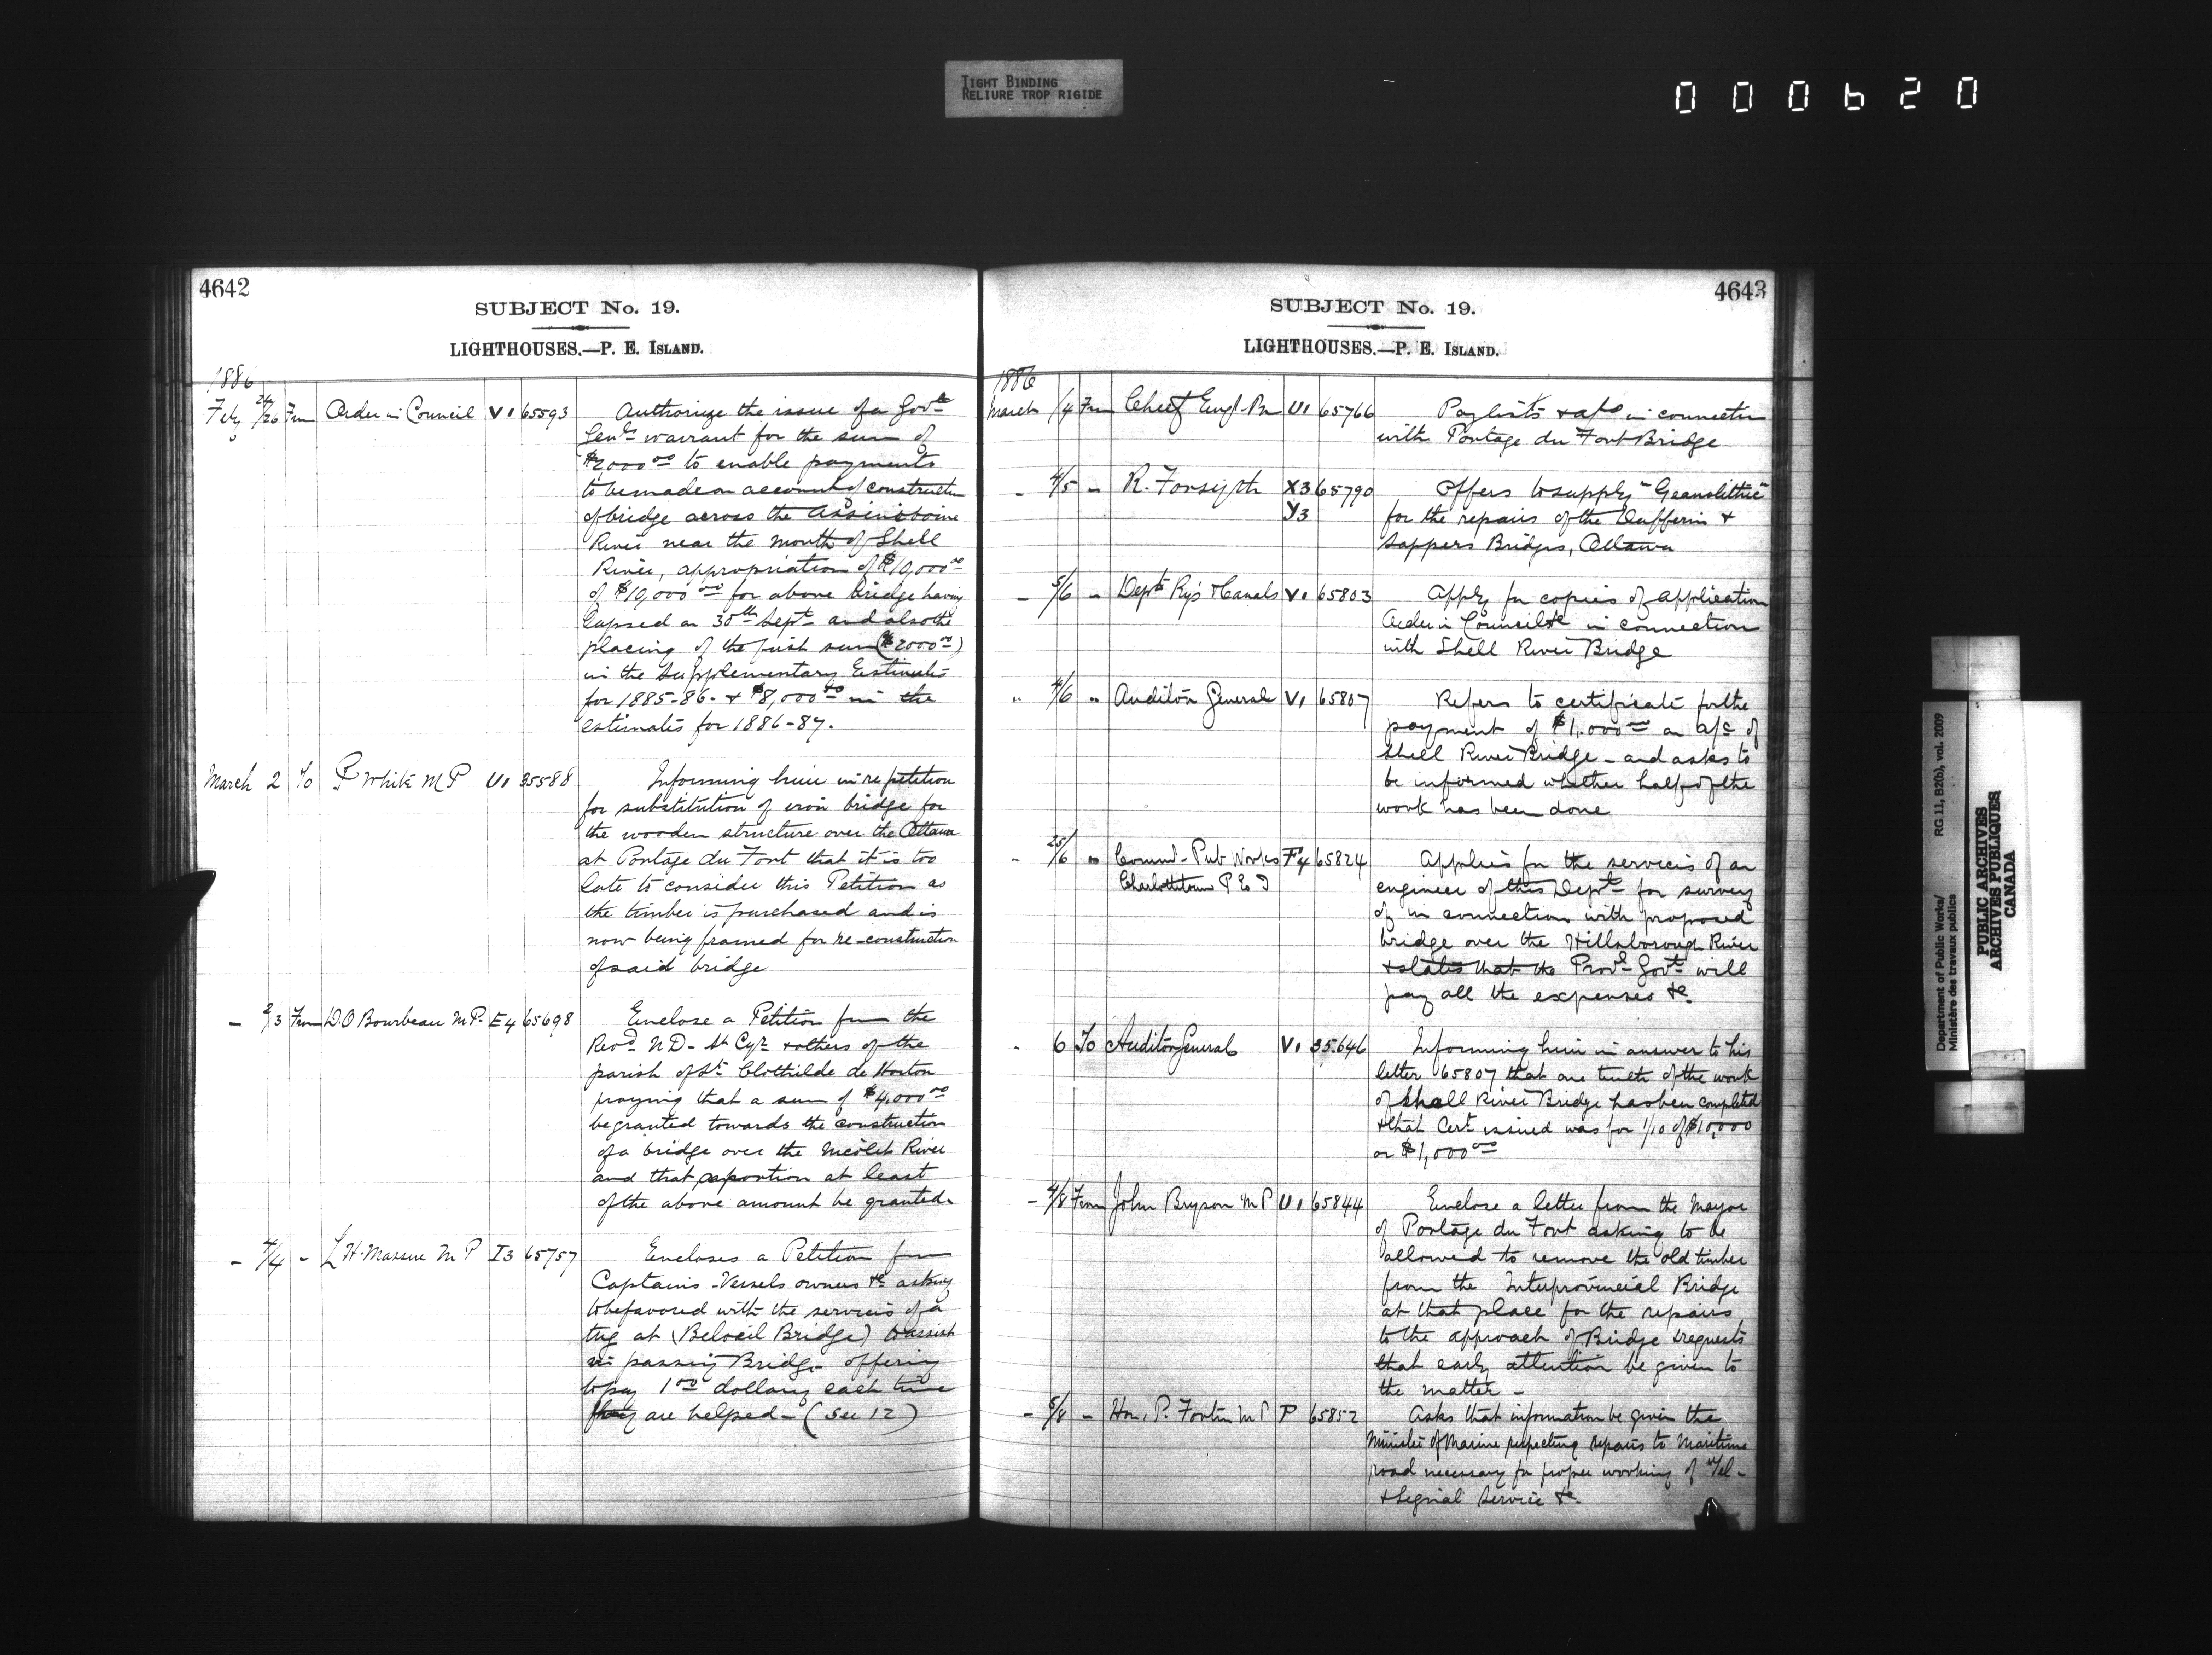 TIGHT BINDING
RELIURE TROP RIGIDE
000620
4642
SUBJECT No. 19.
LIGHTHOUSES.—P. E. ISLAND.
1886
Feby 24/26 From Order in Council V1 65593 Authorize the issue of a Govr
Genls warrant for the sum of
$2000.00 to enable payments
to be made on account of construction
of bridge across the Assiniboine
River near the mouth of Shell
River, appropriation of $10,000.00
of $10,000.00 for above bridge having
lapsed on 30th Sept and also the
placing of the first sum ($2000.00)
in the Supplementary Estimates
for 1885-86. & $8,000.00 in the
estimates for 1886-87.
March 2 To P White M P U1 35588 Informing him in re petition
for substitution of iron bridge for
the wooden structure over the Ottawa
at Portage du Fort that it is too
late to consider this Petition as
the timber is purchased and is
now being framed for re-construction
of said bridge
- 2/3 From D.O Bourbeau M.P. E4 65698 Enclose a Petition from the
Revd N.D. St Cyr & others of the
parish of St Clothilde de Horton
praying that a sum of $4,000.00
be granted towards the construction
of a bridge over the Nicolet River
and that a portion at least
of the above amount be granted.
- 4/4 - L H. Massue M P I3 65757 Encloses a Petition from
Captains - Vessels owners &c asking
to be favored with the services of a
tug at (Beloeil Bridge) to assist
in passing Bridge offering
to pay 1.00 dollars each time
they are helped - (See 12)
4643
SUBJECT No. 19.
LIGHTHOUSES.—P. E. ISLAND.
1886
March /4 From Chief Engr U1 65766 Paylists & a/cs in connection
with Portage du Fort Bridge
- 4/5 - R. Forsyth X3 65790 Offers to supply "Granolithic"
Y3 for the repairs of the Dufferin &
Sappers Bridges, Ottawa
- 5/6 - Dept Rys & Canals V1 65803 Apply for copies of application
Order in Council &c in connection
with Shell River Bridge
" 4/6 " Auditor General V1 65807 Refers to certificate for the
payment of $1,000.00 on a/c of
Shell River Bridge - and asks to
be informed whether half of the
work has been done
- 25/6 " Commr Pub Works F4 65824 Applies for the services of an
Charlottetown P E I engineer of this Dept for survey
of in connection with proposed
bridge over the Hillsborough River
& states that the Provl Govt will
pay all the expenses &c.
- 6 To Auditor General V1 35.646 Informing him in answer to his
letter 65807 that one tenth of the work
of Shell River Bridge has been completed
& that Cert issued was for 1/10 of $10,000
or $1,000.00
- 4/8 From John Bryson M P U1 65844 Enclose a letter from the Mayor
of Portage du Fort asking to be
allowed to remove the old timber
from the Interprovincial Bridge
at that place for the repairs
to the approach of Bridge & requests
that early attention be given to
the matter -
- 5/8 - Hon. P. Fortin M P P 65852 Asks that information be given the
Minister of Marine respecting repairs to Maritime
road necessary for proper working of Tel -
& Signal Service &c.
Department of Public Works/ RG 11, B2(b), vol. 2009
Ministère des travaux publics
PUBLIC ARCHIVES
ARCHIVES PUBLIQUES
CANADA